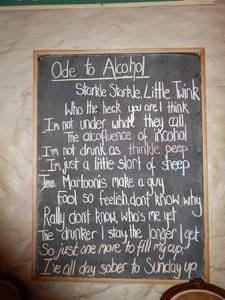 Ode to Alcohol
Starkle Starkle, Little Twink
Who the heck you are I think
I'm not under what they call,
The alcofluence of incohol
I'm not drunk as thinkle peep
I'm just a little slort of sheep
Tee Martoonis make a guy
Fool so feelish, don't know why
Rally don't know, who's me yet
The drunker I stay, the longer I get
So just one more to fill my cup
I've all day sober to Sunday up